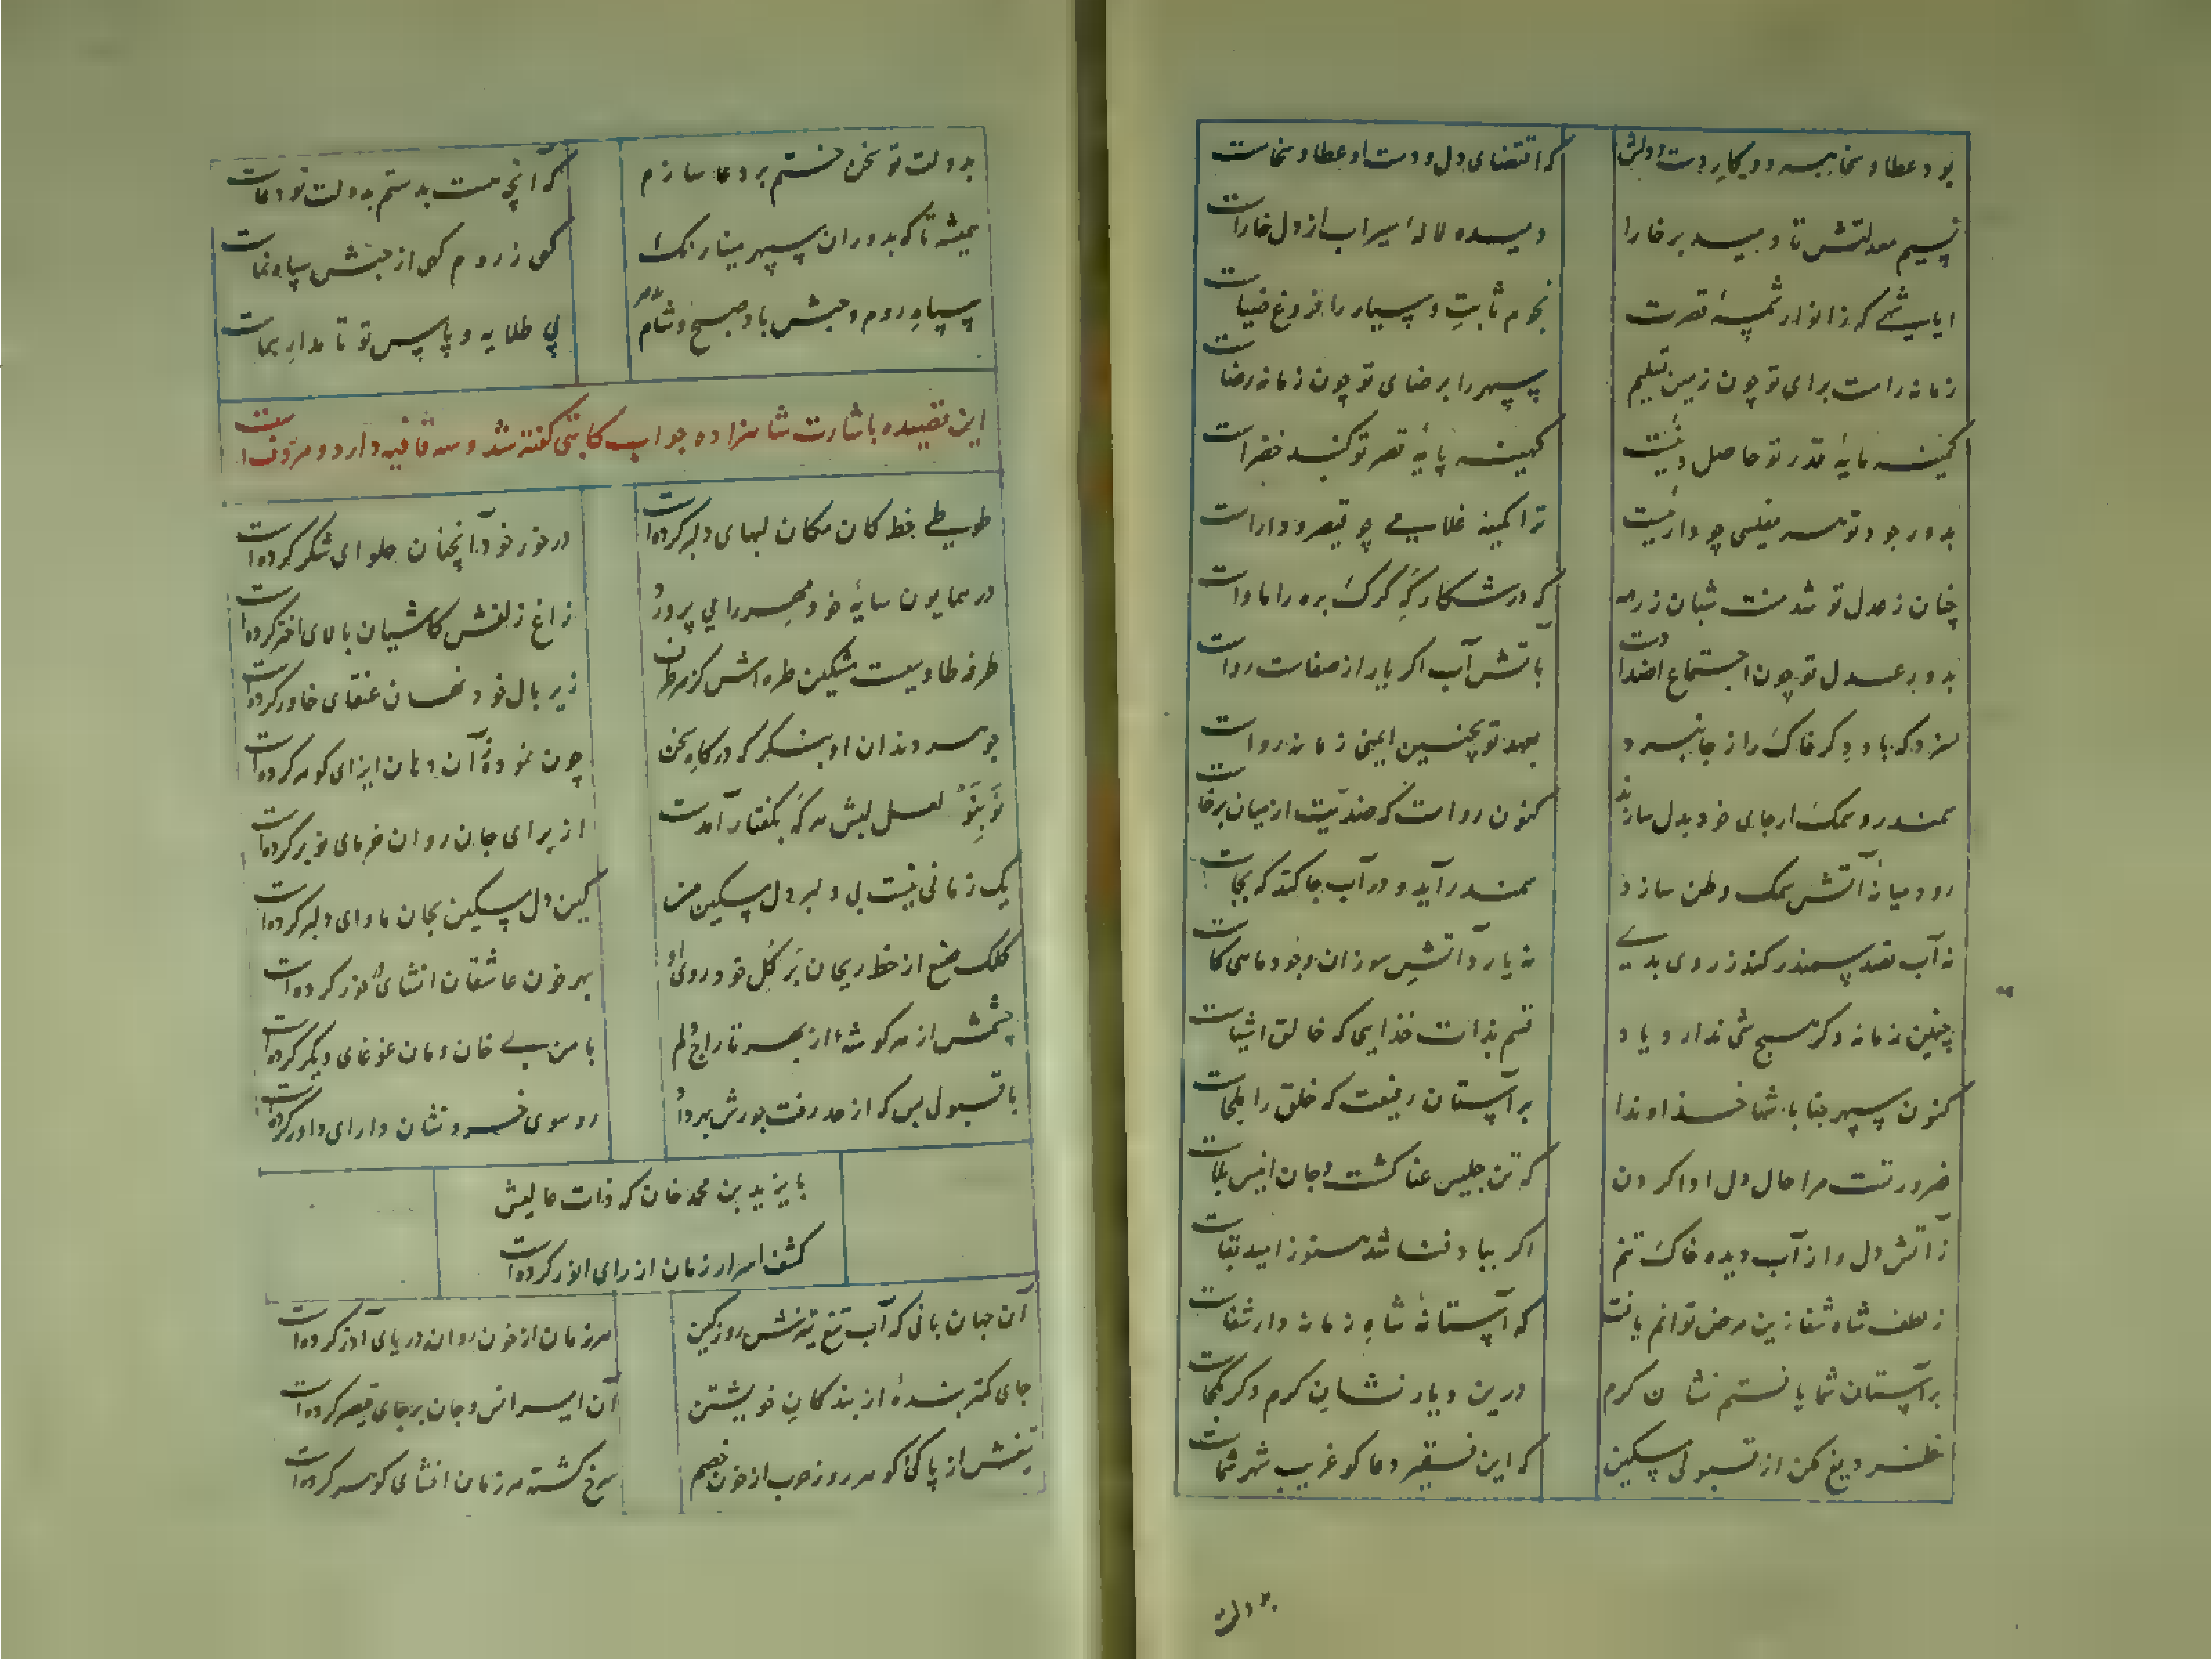 بود عطا و سخا همیشه در کار دست و دلش
که اقتضای دل و دست او عطا و سخاست
نسیم معدلتش تا دمید بر خارا
دمیده لالهٔ سیراب از دل خاراست
ایا شهی که ز انوار شمسهٔ قصرت
نجوم ثابت و سیار را فروغ ضیاست
زمانه راست برای تو چون زمین تسلیم
سپهر را برضای تو چون زمانه رضاست
کمینه مایهٔ قدر تو حاصل دنیست
کهینه پایهٔ قصر تو گنبد خضراست
بدور جود تو مفلسی چو دارا نیست
ترا کمینه غلامی چو قیصر و داراست
چنان ز عدل تو شد شبان ز رمه
که در شکارگه گرگ بره را ماواست
بدور عدل تو چون اجتماع اضداد است
بآتش آب اگر یار از صفاست رواست
سزد که باد دگر خاک را ز جا نبرد
بعهد تو چنین ایمنی زمانه رواست
سمندر و سمک ار جای خود بدل سازند
کنون رواست که ضدیت از میان برخاست
رود میانهٔ آتش سمک وطن سازد
سمندر آید و در آب جا کند که بجاست
نه آب قصد سمندر کند ز روی بدی
نه یارد آتش سوزان وجود ماهی کاست
چنین زمانه دگر هیچ شی ندارد یاد
قسم بذات خدایی که خالق اشیاست
کنون سپهر جنابا شها خداوندا
بر آستان رفیعت که خلق را ملجاست
ضرورتست مرا حال دل ادا کردن
که تن جلیس عنا گشت و جان انیس بلاست
ز آتش دل و از آب دیده خاک تنم
اگر بباد فنا شد هنوز امید بقاست
ز لطف شاه شفا زین مرض توانم یافت
که آستانهٔ شاه زمانه دار شفاست
بر آستان شما یافتم نشان کرم
درین دیار نشان کرم دگر بکجاست
نظر دریغ مکن از قبولی مسکین
که این فقیر دعاگو غریب شهر شماست
بدولت
بدولت تو سخن ختم بر دعا سازم
که آنچه هست بدستم بدولت تو دعاست
همیشه تا که بدوران سپهر مینا رنگ
گهی ز روم گهی از حبش سپاه نماست
سپاه روم و حبش باد صبح و شام
پی طلایه و پاس تو تا مدار سماست
این قصیده باشارت شاهزاده جواب کاتبی گفته شد و سه قافیه دارد و مردفست
طوطی خط کان مکان لبهای دلبر کرده است
در خور خود آنچنان حلوای شکر کرده است
در همایون سایهٔ خود مهر را می پرورد
زاغ زلفش کاشیان بالای اختر کرده است
طرفه طاوسیست مشکین طره اش کز هر طرف
زیر بال خود نهان عنقای خاور کرده است
جوهر دندان او بنگر که در گاه سخن
چون نموده آن دهان ایزای گوهر کرده است
نو بنو لعل لبش هرگه بگفتار آمدست
از برای جان روان خرمای نوبر کرده است
یک زمانی نیست بی دلبر دل مسکین من
کین دل مسکین بجان ماوای دلبر کرده است
کلک صنع از خط ریحان بر گل خود روی او
بهر خون عاشقان انشای محضر کرده است
چشمش از هر گوشهٔ از بهر تاراج دلم
با من بی خان و مان غوغای دیگر کرده است
با قبولی بس که از حد رفت جورش
رو سوی خسرو نشان دارای داور کرده است
بایزید بن محمد خان که ذات عالیش
کشف اسرار زمان از رای انور کرده است
آن جهان بانی که آب تیغ تیزش روز کین
هر زمان از خون روان دریای آذر کرده است
جای کمتر بندهٔ از بندگان خویشتن
آن امیر انس و جان بر جای قیصر کرده است
تیغش از پاکی گوهر روز حرب از خون خصم
سرخ گشته هر زمان افشای گوهر کرده است